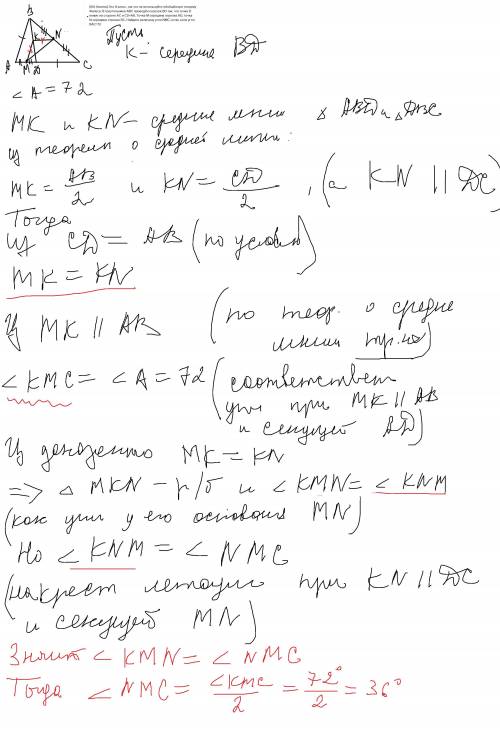 B
K
N
A
M
D
C
Пусть
K - середина BD
∠A = 72
MK и KN - средние линии △ ABD и △ DBC
из теоремы о средней линии:
MK = AB/2 и KN = CD/2, (а KN || DC)
Тогда
из CD = AB (по условию)
MK = KN
Из MK || AB (по теор. о средне
линии тр-ка)
∠KMC = ∠A = 72 (соответствен
углы при MK || AB
и секущей AD)
Из доказанно MK = KN
=> △ MKN - р/б и ∠KMN = ∠KNM
(как углы у его основания MN)
Но ∠KNM = ∠NMC
(накрест лежащие при KN || DC
и секущей MN)
Значит ∠KMN = ∠NMC
Тогда ∠NMC = ∠KMC/2 = 72°/2 = 36°